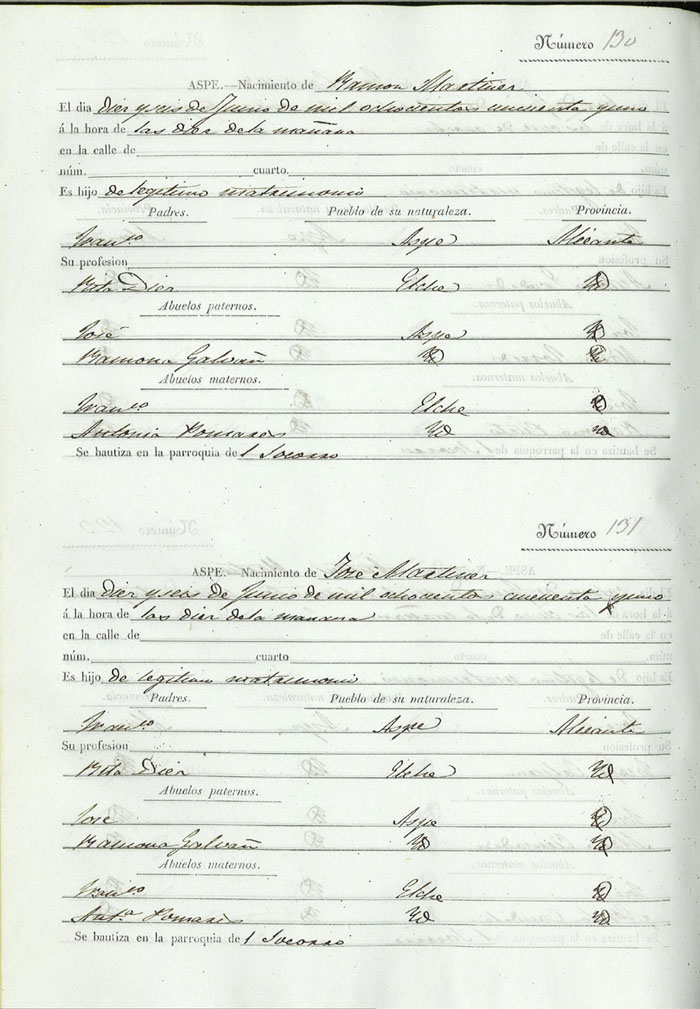 Número 130
ASPE.—Nacimiento de Ramon Martinez
El dia diez y seis de Junio de mil ochocientos cincuenta y uno
á la hora de las diez de la mañana
en la calle de
núm. cuarto.
Es hijo de legitimo matrimonio
Padres. Pueblo de su naturaleza. Provincia.
Franco Aspe Alicante
Su profesion
Rita Diez Elche Yd
Abuelos paternos.
José Aspe Yd
Ramona Galvañ Yd Yd
Abuelos maternos.
Franco Elche Yd
Antonia Pomares Yd Yd
Se bautiza en la parroquia del Socorro
Número 131
ASPE.—Nacimiento de Jose Martinez
El dia diez y seis de Junio de mil ochocientos cincuenta y uno
á la hora de las diez de la manana
en la calle de
núm. cuarto
Es hijo de legitimo matrimonio
Padres. Pueblo de su naturaleza. Provincia.
Franco Aspe Alicante
Su profesion
Rita Diez Elche Yd
Abuelos paternos.
José Aspe Yd
Ramona Galvañ Yd Yd
Abuelos maternos.
Franco Elche Yd
Anta Pomares Yd Yd
Se bautiza en la parroquia del Socorro